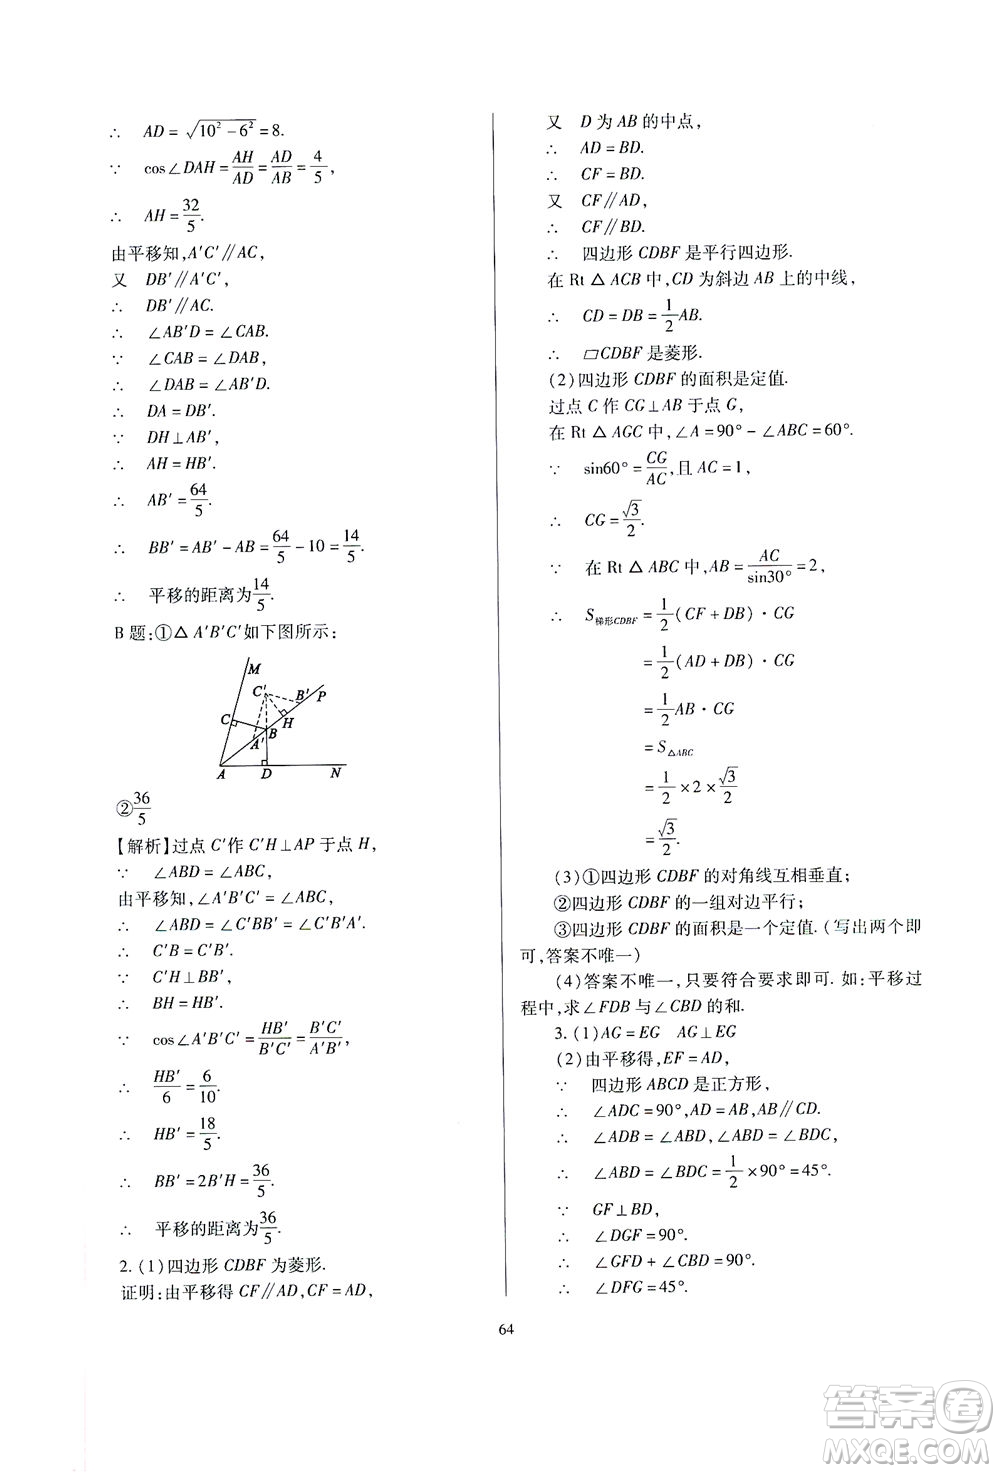 ∴ AD=√(10²－6²)=8.
∵ cos∠DAH=AH/AD=AD/AB=4/5,
∴ AH=32/5.
由平移知,A′C′∥AC,
又 DB′∥A′C′,
∴ DB′∥AC.
∴ ∠AB′D=∠CAB.
∵ ∠CAB=∠DAB,
∴ ∠DAB=∠AB′D.
∴ DA=DB′.
∵ DH⊥AB′,
∴ AH=HB′.
∴ AB′=64/5.
∴ BB′=AB′－AB=64/5－10=14/5.
∴ 平移的距离为14/5.
B 题:①△A′B′C′如下图所示:
M
C′ B′ P
C H
A′ B
A D N
②36/5
【解析】过点 C′作 C′H⊥AP 于点 H,
∵ ∠ABD=∠ABC,
由平移知,∠A′B′C′=∠ABC,
∴ ∠ABD=∠C′BB′=∠C′B′A′.
∴ C′B=C′B′.
∵ C′H⊥BB′,
∴ BH=HB′.
∵ cos∠A′B′C′=HB′/B′C′=B′C′/A′B′,
∴ HB′/6=6/10.
∴ HB′=18/5.
∴ BB′=2B′H=36/5.
∴ 平移的距离为36/5.
2.(1)四边形 CDBF 为菱形.
证明:由平移得 CF∥AD,CF=AD,
又 D 为 AB 的中点,
∴ AD=BD.
∴ CF=BD.
又 CF∥AD,
∴ CF∥BD.
∴ 四边形 CDBF 是平行四边形.
在 Rt△ACB 中,CD 为斜边 AB 上的中线,
∴ CD=DB=1/2AB.
∴ ▱CDBF 是菱形.
(2)四边形 CDBF 的面积是定值.
过点 C 作 CG⊥AB 于点 G,
在 Rt△AGC 中,∠A=90°－∠ABC=60°.
∵ sin60°=CG/AC,且 AC=1,
∴ CG=√3/2.
∵ 在 Rt△ABC 中,AB=AC/sin30°=2,
∴ S梯形CDBF=1/2(CF+DB)·CG
=1/2(AD+DB)·CG
=1/2AB·CG
=S△ABC
=1/2×2×√3/2
=√3/2.
(3)①四边形 CDBF 的对角线互相垂直;
②四边形 CDBF 的一组对边平行;
③四边形 CDBF 的面积是一个定值.(写出两个即
可,答案不唯一)
(4)答案不唯一,只要符合要求即可. 如:平移过
程中,求∠FDB 与∠CBD 的和.
3.(1)AG=EG AG⊥EG
(2)由平移得,EF=AD,
∵ 四边形 ABCD 是正方形,
∴ ∠ADC=90°,AD=AB,AB∥CD.
∴ ∠ADB=∠ABD,∠ABD=∠BDC,
∴ ∠ABD=∠BDC=1/2×90°=45°.
∵ GF⊥BD,
∴ ∠DGF=90°.
∴ ∠GFD+∠CBD=90°.
∴ ∠DFG=45°.
64
答案圈
MXQE.COM